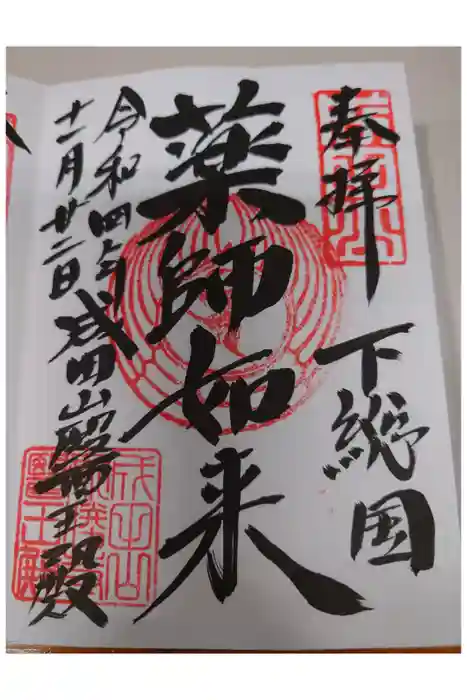 奉拝
下総国
薬師如来
令和四年
十二月廿二日
成田山醫王殿
成田山
醫王殿